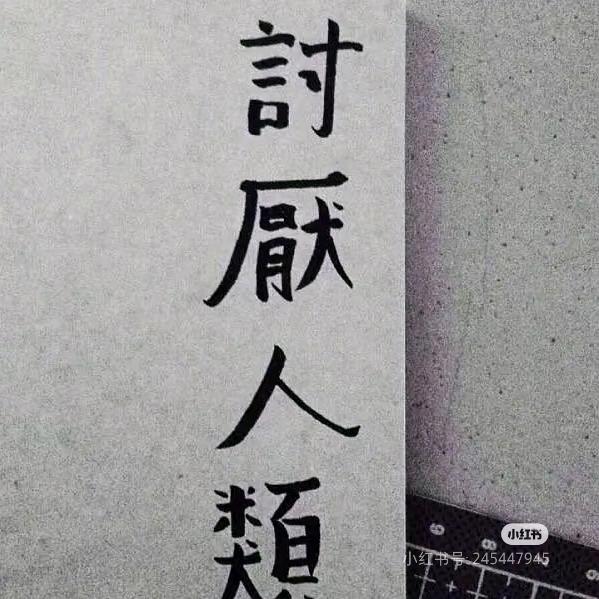 討厭人類
小红书
小红书号:245447945
6
8
9